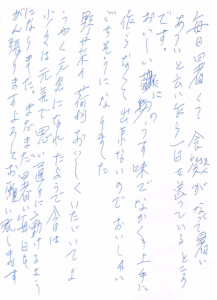 毎日暑くて食欲がなく暑い
あついと云い乍ら一日を送っているところ
です。
おいしい漬物のうす味でなかなか上手に
作らなくて出来ないのでおいしい
ごちそうになりました
野菜の荷物おいしくいただいてよ
うやく元気になれたようで今日は
少々は元気で思い通りに動けるよう
になりました。まだまだ暑い毎日を
がん張りますよろしくお願い致します